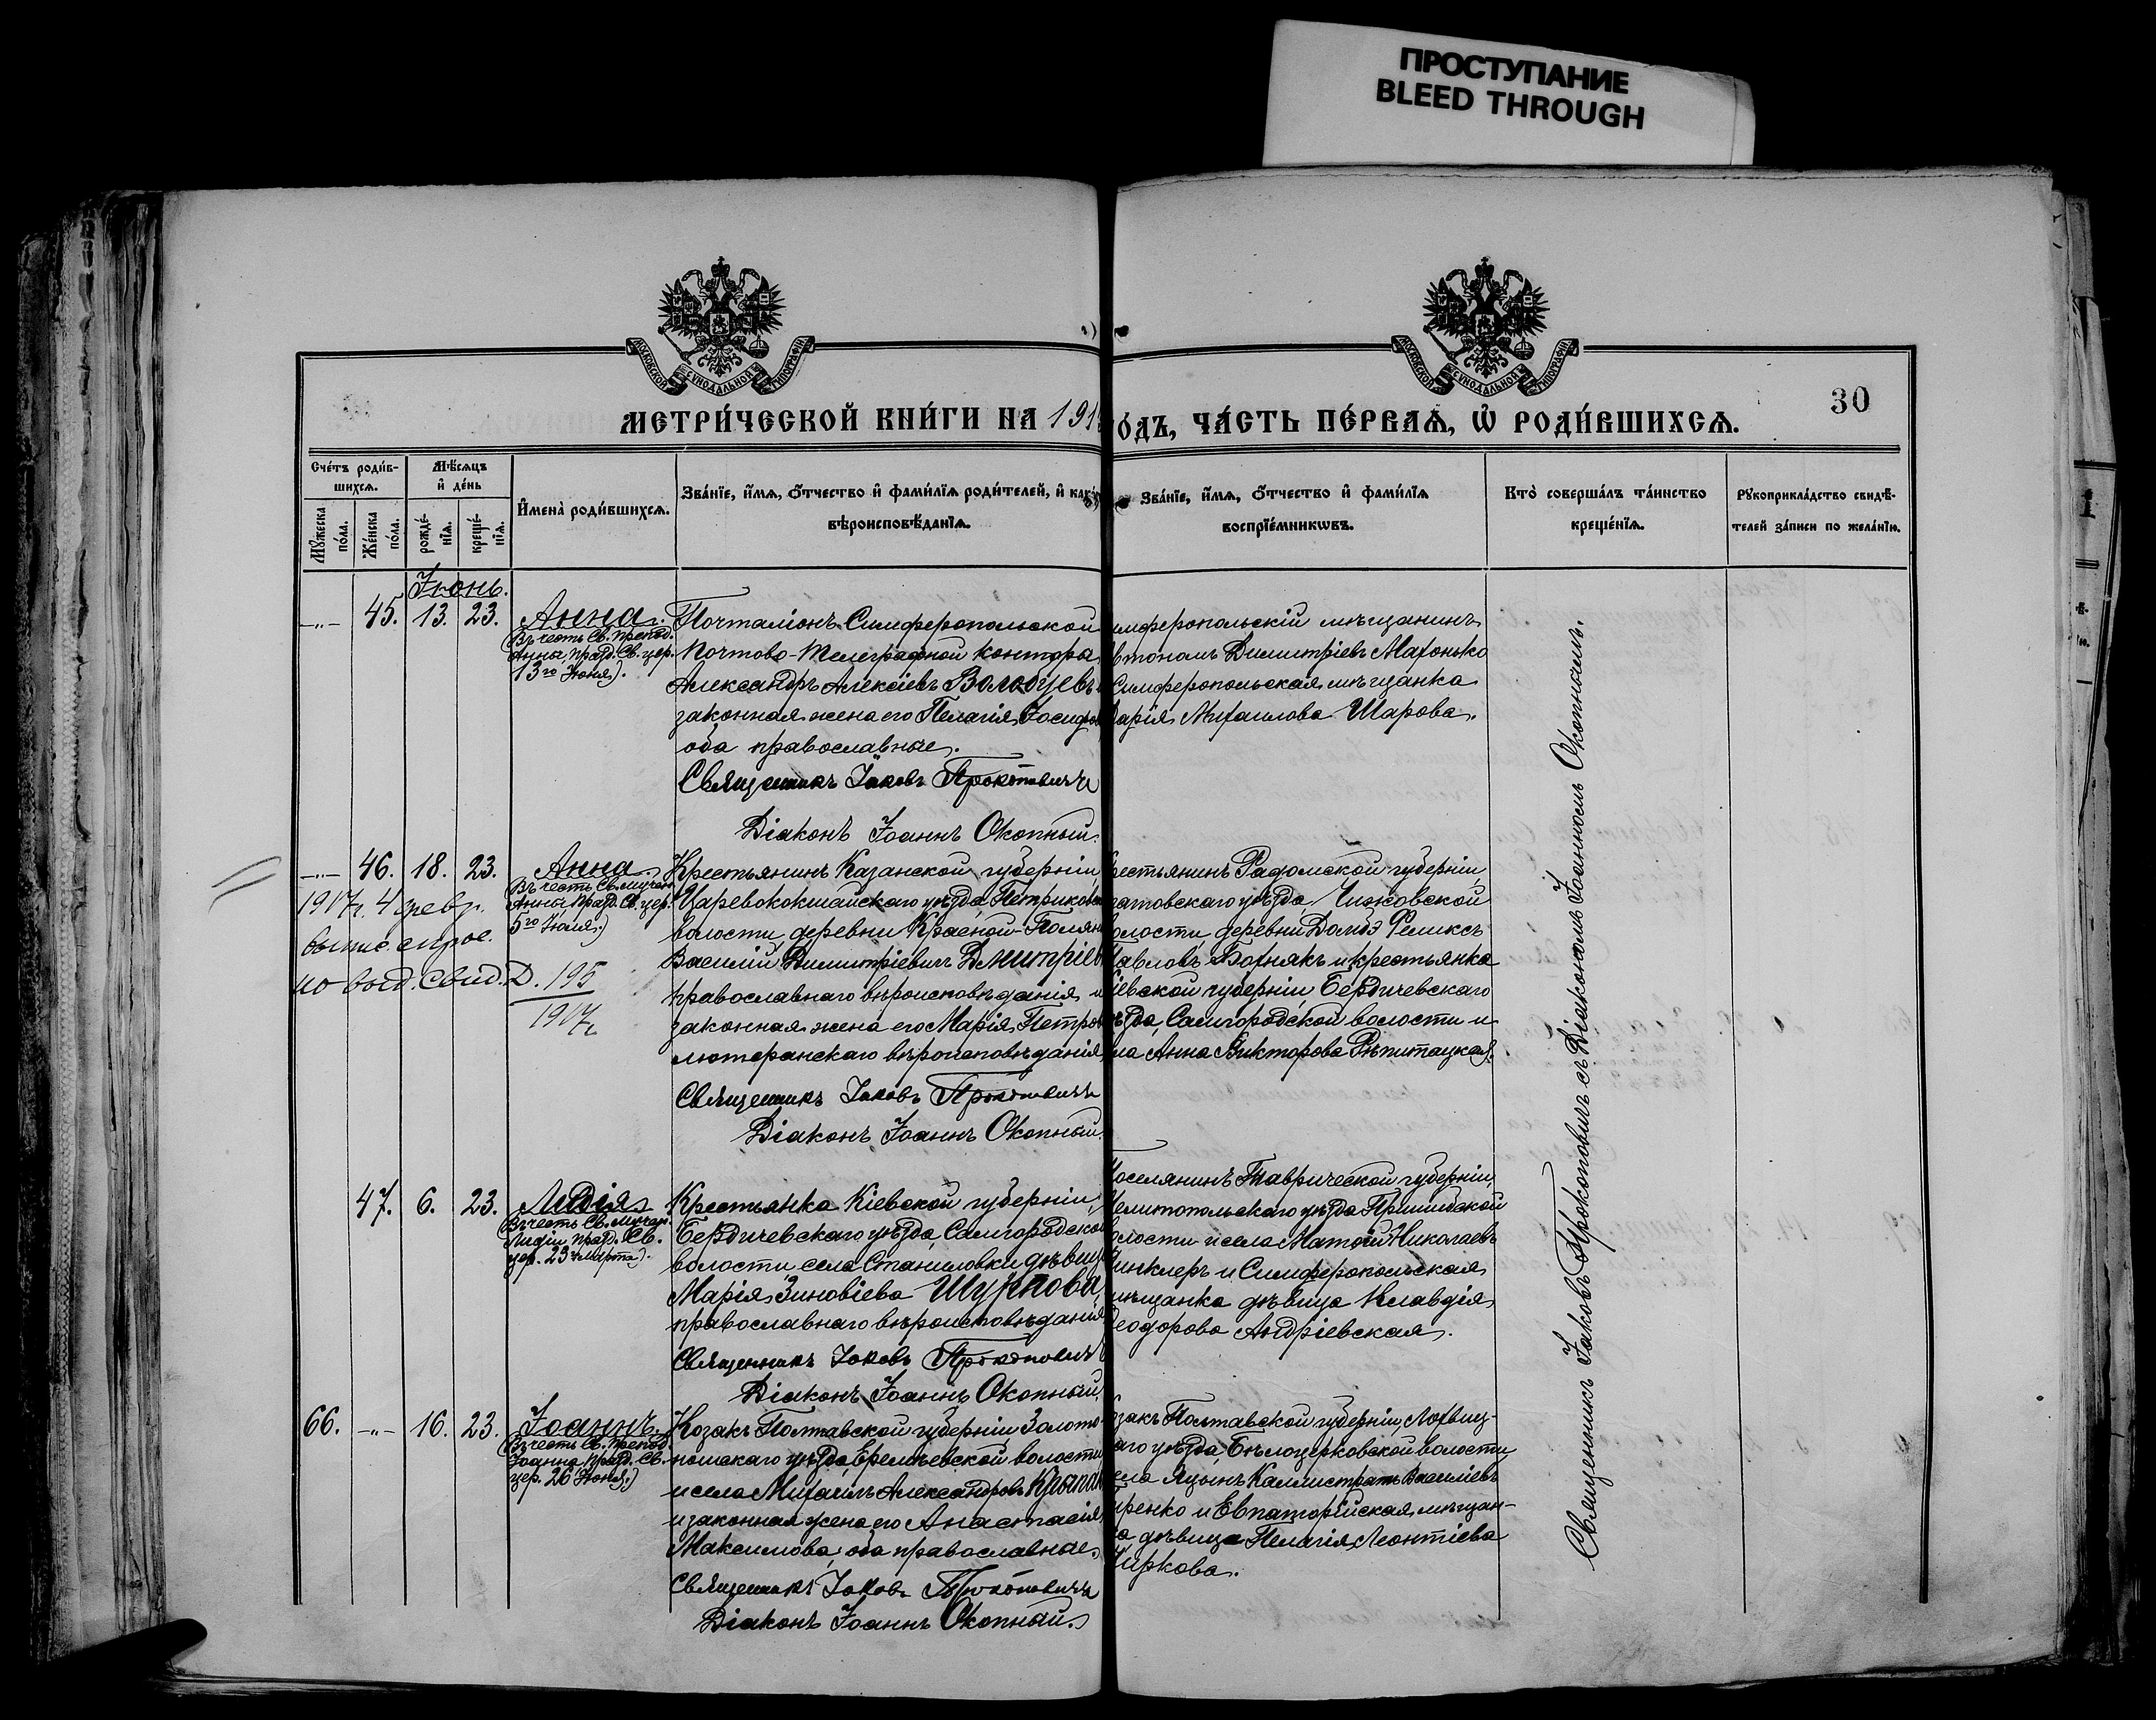 ПРОСТУПАНИЕ
BLEED THROUGH
МОСКОВСКОЙ СѴНОДАЛЬНОЙ ТИПОГРАФІИ
МОСКОВСКОЙ СѴНОДАЛЬНОЙ ТИПОГРАФІИ
30
МЕТРИ́ЧЕСКОЙ КНИ́ГИ НА 191
О́ДЪ, ЧА́СТЬ ПЕ́РВАѦ, Ѡ҆ РОДИ́ВШИХСѦ.
Сче́тъ роди́в-
шихсѧ.
Мѣ́сѧцъ
и҆ де́нь
Мꙋ́жеска
по́ла.
Же́нска
по́ла.
рожде́-
нїѧ.
креще́-
нїѧ.
И҆мена̀ роди́вшихсѧ.
Зва́нїе, и҆́мѧ, ѻ҆́тчество и҆ фами́лїѧ роди́телей, и҆ как
вѣроисповѣ́данїѧ.
Зва́нїе, и҆́мѧ, ѻ҆́тчество и҆ фами́лїѧ
воспрїе́мникѡвъ.
Кто̀ соверша́лъ та́инство
креще́нїѧ.
Рꙋкоприкла́дство свидѣ́-
телей за́писи по жела́нїю.
Іюнь.
-"- 45. 13. 23. Анна.
Въ честь Св. препод.
Анны, празд. Св. цер.
13го Іюня).
Почталіонъ Симферопольской
Почтово-Телеграфной конторы
Александръ Алексіевъ Володуевъ
законная жена его Пелагія Іосифов
оба православные.
Священникъ Іаковъ Прокоповичъ
Діаконъ Іоаннъ Окопный.
имферопольскій мѣщанинъ
втономъ Димитріевъ Махонько
Симферопольская мѣщанка
арія Михаилова Шарова.
-"- 46. 18. 23. Анна.
Въ честь Св. мучен.
Анны, празд. Св. цер.
5го Іюля.)
1917г. 4 февр.
выд. свид. D. 195
1917г
Крестьянинъ Казанской губерніи,
Царевококшайскаго уѣзда, Петриковск
волости, деревни Красной-Полян
Василій Димитріевичъ Дмитріев
православнаго вѣроисповѣданія и
законная жена его Марія Петров
лютеранскаго вѣроисповѣданія,
Священникъ Іаковъ Прокоповичъ
Діаконъ Іоаннъ Окопный.
рестьянинъ Радомской губерніи
атовскаго уѣзда, Чижовской
волости, деревни Домбэ Феликсъ
Павловъ Бохнякъ и крестьянка
іевской губерніи, Бердичевскаго
ѣзда, Самгородской волости и
ла Анна Викторова Рѣпитацкая.
47. 6. 23. Лидія
Въ честь Св. мучен.
Лидіи, празд. Св.
цер. 23го марта).
Крестьянка Кіевской губерніи,
Бердичевскаго уѣзда, Самгородско
волости, села Станиловки дѣвиц
Марія Зиновіева Шурпова,
православнаго вѣроисповѣданія
Священникъ Іаковъ Прокоповичъ
Діаконъ Іоаннъ Окопный.
Поселянинъ Таврической губерніи,
Мелитопольскаго уѣзда Пришибской
олости и села Матѳій Николаевъ
Винклеръ и Симферопольская
мѣщанка дѣвица Клавдія
еодорова Андріевская.
66. -"- 16. 23. Іоаннъ.
Въ честь Св. препод.
Іоанна, празд. Св.
цер. 26 Іюня.)
Козакъ Полтавской губерніи, Золото-
ношскаго уѣзда, Еремѣевской волости
и села Михаилъ Александровъ
и законная жена его Анастасія
Максимова, оба православные.
Священникъ Іаковъ Прокоповичъ
Діаконъ Іоаннъ Окопный.
озакъ Полтавской губерніи, Лохвиц-
аго уѣзда, Бѣлоцерковской волости,
ела Яцынъ Каллистратъ Василіевъ
ренко и Евпаторійская мѣщан-
ка дѣвица Пелагія Леонтіева
Чиркова.
Священникъ Іаковъ Прокоповичъ съ Діакономъ Іоанномъ Окопнымъ.